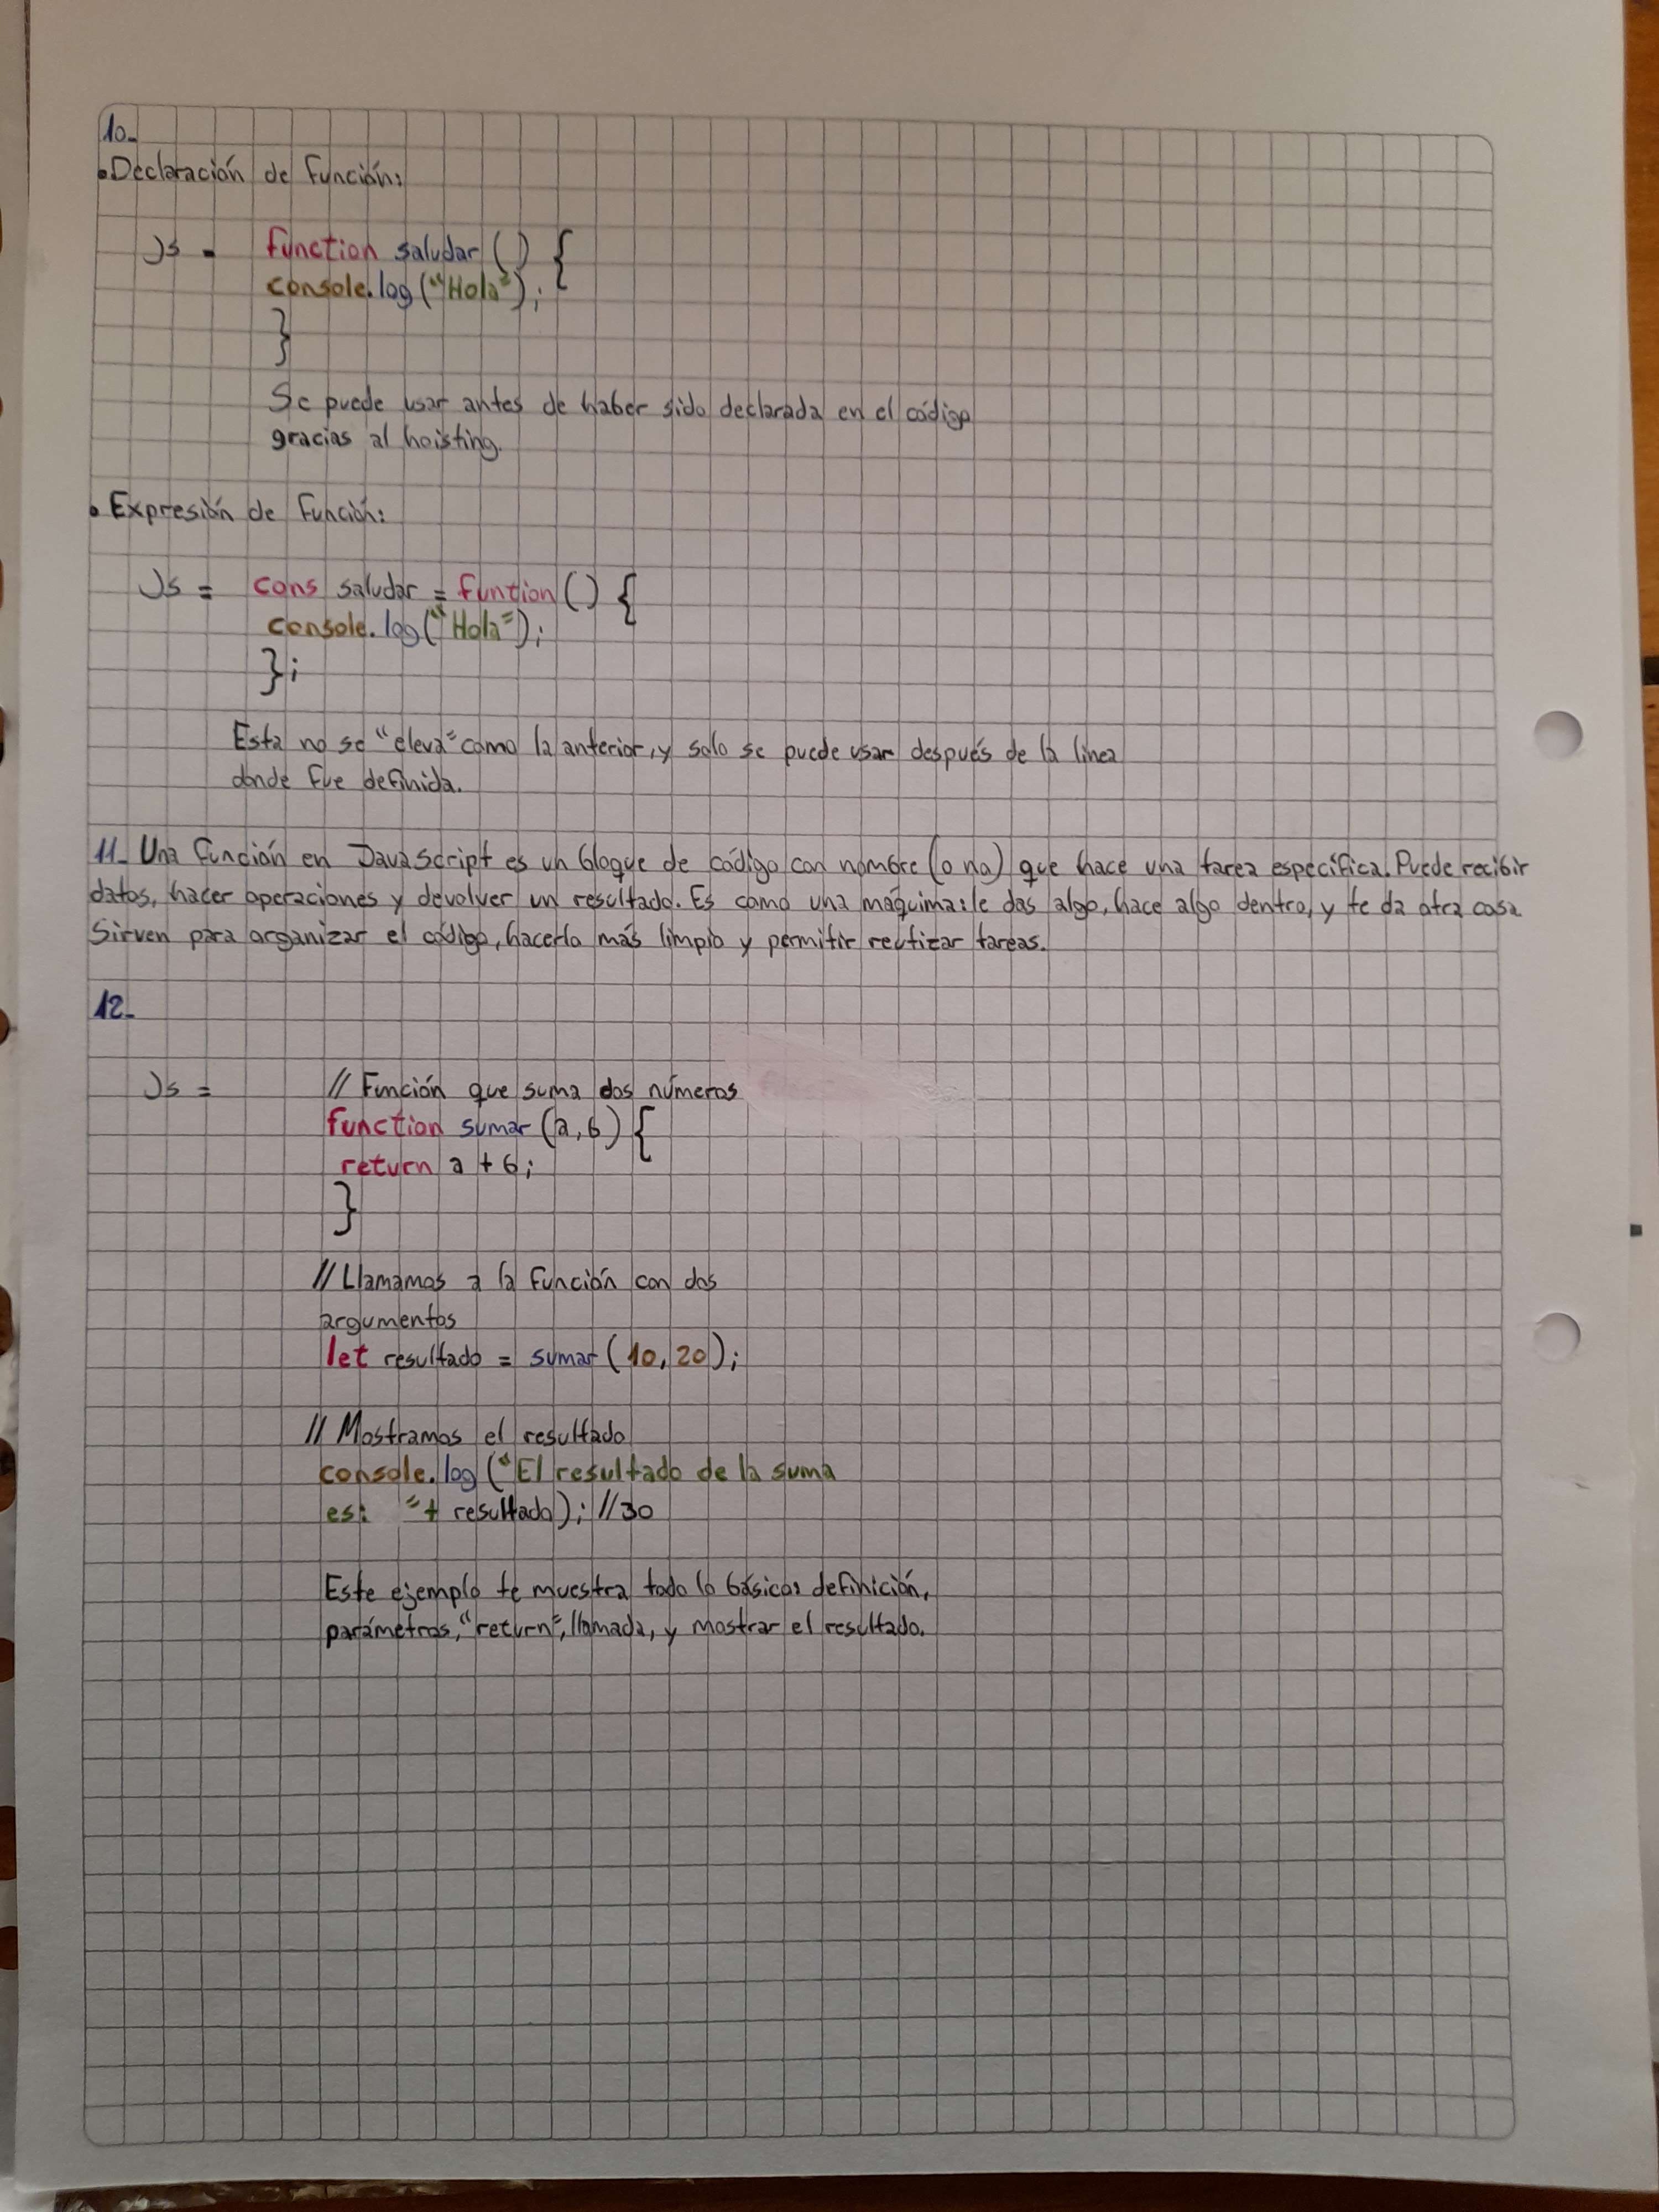 10-
• Declaración de Función:
Js = function saludar () {
console.log ("Hola");
}
Se puede usar antes de haber sido declarada en el código
gracias al hoisting.
• Expresión de Función:
Js = cons saludar = funtion () {
console.log ("Hola");
};
Esta no se "eleva" como la anterior, y solo se puede usar después de la línea
donde fue definida.
11- Una función en JavaScript es un bloque de código con nombre (o no) que hace una tarea específica. Puede recibir
datos, hacer operaciones y devolver un resultado. Es como una máquima: le das algo, hace algo dentro, y te da otra cosa.
Sirven para organizar el código, hacerlo más limpio y permitir tareas.
12-
Js = // Función que suma dos números
function sumar (a, b) {
return a + b;
}
// Llamamos a la función con dos
argumentos
let resultado = sumar (10, 20);
// Mostramos el resultado
console.log ("El resultado de la suma
es: " + resultado); //30
Este ejemplo te muestra todo lo básico: definición,
parámetros, "return", llamada, y mostrar el resultado.